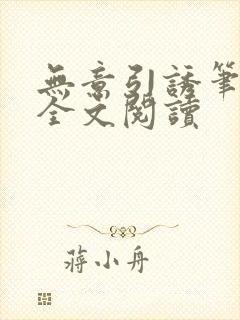 無意引誘筆
全文閱讀
蔣小舟